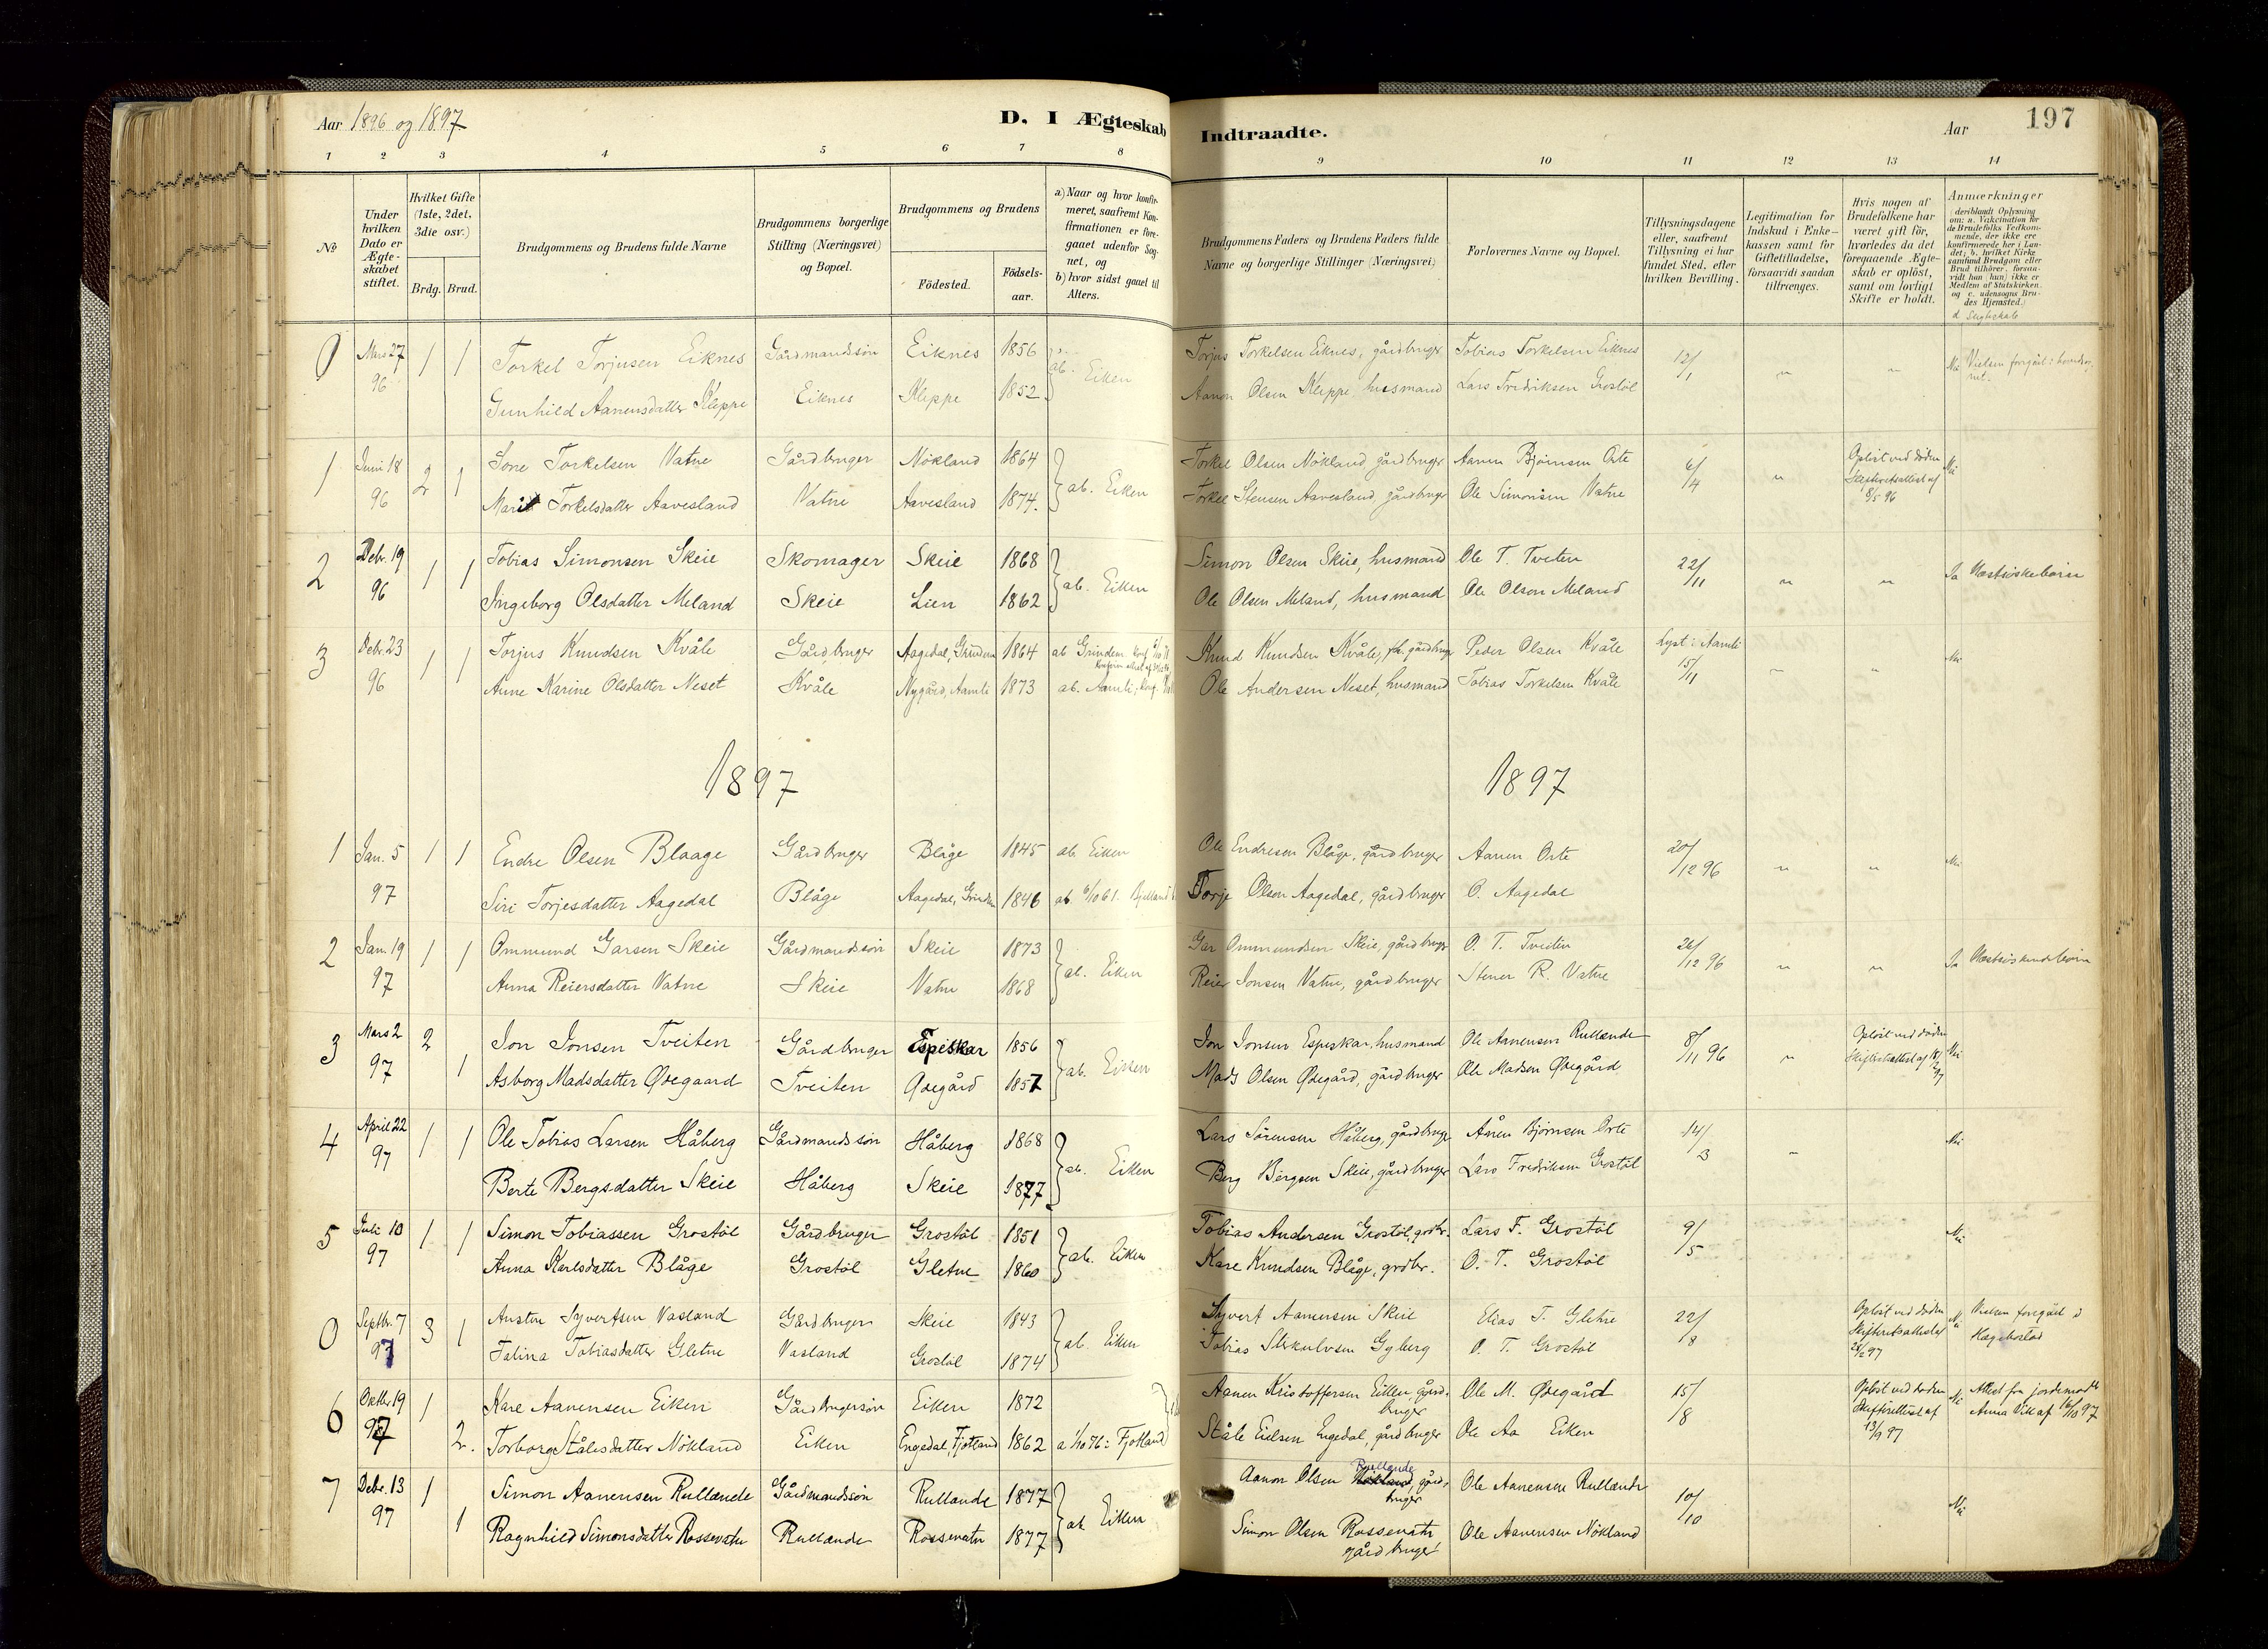 Aar 1896 og 1897
D. I Ægteskab Indtraadte.
Aar
197
1 2 3 4 5 6 7 8 9 10 11 12 13 14
No
Under hvilken Dato er Ægteskabet stiftet.
Hvilket Gifte (1ste, 2det, 3die osv.)
Brdg. Brud.
Brudgommens og Brudens fulde Navne
Brudgommens borgerlige Stilling (Næringsvei) og Bopæl.
Brudgommens og Brudens
Födested. Födsels-aar.
a) Naar og hvor konfirmeret, saafremt Konfirmationen er foregaaet udenfor Sognet, og
b) hvor sidst gaaet til Alters.
Brudgommens Faders og Brudens Faders fulde Navne og borgerlige Stillinger (Næringsvei)
Forlovernes Navne og Bopæl.
Tillysningsdagene eller, saafremt Tillysning ei har fundet Sted, efter hvilken Bevilling.
Legitimation for Indskud i Enkekassen samt for Giftetilladelse, forsaavidt saadan tiltrænges.
Hvis nogen af Brudefolkene har været gift för, hvorledes da det foregaaende Ægteskab er oplöst, samt om lovligt Skifte er holdt.
Anmærkninger
(deriblandt Oplysning om: a. Vakcination for de Brudefolks Vedkommende, der ikke ere konfirmerede her i Landet; b. hvilket Kirkesamfund Brudgom eller Brud tilhörer, forsaavidt han (hun) ikke er Medlem af Statskirken, og c. udensogns Brudes Hjemsted.)
d. Slegtskab
0 Mars 27 1 1 Torkel Torjusen Eiknes Gårdmandssön Eiknes 1856 ab. Eiken Torjus Torkelsen Eiknes, gårdbruger Tobias Torkelsen Eiknes 12/1 " " Nei Vielsen foregået i hovedsognet.
96 Gunhild Aanensdatter Kleppe Eiknes Kleppe 1852 Aanon Olsen Kleppe husmand Lars Fredriksen Grostöl
1 Juni 18 2 1 Sone Torkelsen Vatne Gårdbruger Nökland 1864 ab. Eiken Torkel Olsen Nökland, gårdbruger Aanen Bjørnsen Orte 6/4 " Oplöst ved döden Nei
96 Marit Torkelsdatter Aavesland Vatne Aavesland 1874. Torkel Stensen Aavesland, gårdbruger Ole Simonsen Vatne Skifteretsattest af 8/5 96
2 Debr. 19 1 1 Tobias Simonsen Skeie Skomager Skeie 1868 ab. Eiken Simon Olsen Skeie, husmand Ole T. Tveiten 22/11 " " Ja Næstsöskebörn
96 Ingeborg Olsdatter Meland Skeie Lien 1862 Ole Olsen Meland, husmand Ole Olson Meland
3 Debr. 23 1 1 Torjus Knudsen Kvåle Gårdbruger Aagedal, Grindem 1864 ab Grindem Knud Knudsen Kvåle, fh. gårdbruger Peder Olsen Kvåle Lyst i Aamli " " Nei
96 Anne Karine Olsdatter Neset Kvåle Nygård, Aamli 1873 ab. Aamli; Ole Andersen Neset, husmand Tobias Torkelsen Kvåle 15/11
1897
1897
1 Jan. 5 1 1 Endre Olsen Blaage Gårdbruger Blåge 1845 ab Eiken Ole Endresen Blåge, gårdbruger Aanen Orte 20/12 96 " " Nei
97 Siri Torjesdatter Aagedal Blåge Aagedal, Grindem 1846 ab 6/10 61. Bjelland Torje Olsen Aagedal, gårdbruger O. Aagedal
2 Jan. 19 1 1 Ommund Garsen Skeie Gårdmandssön Skeie 1873 ab. Eiken Gar Ommundsen Skeie, gårdbruger O. T. Tveiten 26/12 96 " " Ja Næstsöskendebörn
97 Anna Reiersdatter Vatne Skeie Vatne 1868 Reier Jonsen Vatne, gårdbruger Stener R. Vatne
3 Mars 2 2 Jon Jonsen Tveiten Gårdbruger Espeskar 1856 ab. Eiken Jon Jonsen Espeskar, husmand Ole Aanensen Rullænde 8/11 96 " Oplöst ved döden Nei
97 1 Asborg Madsdatter Ødegaard Tveiten Ødegård 1857 Mads Olsen Ødegård, gårdbruger Ole Madsen Ødegård
4 April 22 1 1 Ole Tobias Larsen Håberg Gårdmandssön Håberg 1868 ab. Eiken Lars Sörensen Håberg, gårdbruger Aanen Bjørnsen Orte 14/3 " Nei
97 Berte Bergsdatter Skeie Håberg Skeie 1877 Berg Bergsen Skeie, gårdbruger Lars Fredriksen Grostöl
5 Juli 10 1 1 Simon Tobiassen Grostöl Gårdbruger Grostöl 1851 ab. Eiken Tobias Andersen Grostöl, grdbr. Lars F. Grostöl 9/5 Nei
97 Anna Karlsdatter Blåge Grostöl Gletne 1860 Kare Knudsen Blåge, grdbr. O. T. Grostöl
0 Septbr. 7 3 1 Austen Syvertsen Vasland Gårdbruger Skeie 1843 ab. Eiken Syvert Aanensen Skeie Elias T. Gletne 22/8 Oplöst ved döden Nei Vielsen foregået i
97 Tobiasdatter Gletne Vasland Grostöl 1874 Tobias Gyberg O. T. Grostöl Skifteretsattest af 97 Hægebostad
6 Oktbr 19 1 Kare Aanensen Eiken Gårdbrugersön Eiken 1872 Aanen Kristoffersen Eiken, gårdbruger Ole M. Ødegård 15/8 Oplöst ved döden Nei Attest fra jordemoder
97 2. Torborg Stålesdatter Nökland Eiken Engedal, Fjotland 1862 a 1/10 76 i Fjotland Ståle Eielsen Engedal, gårdbruger Ole Aa Eiken Skifteattest af 13/9 97 Anna Vik af 16/10 97
7 Debr. 13 1 Simon Aanensen Rullænde Gårdmandssön Rullænde 1877 ab Eiken Aanon Olsen Rullænde, gårdbruger Ole Aanensen Rullænde 10/10 Nei
97 1 Ragnhild Simonsdatter Rossevatn Rullænde Rossevatn 1877 Simon Olsen Rossevatn gårdbruger Ole Aanensen Nökland